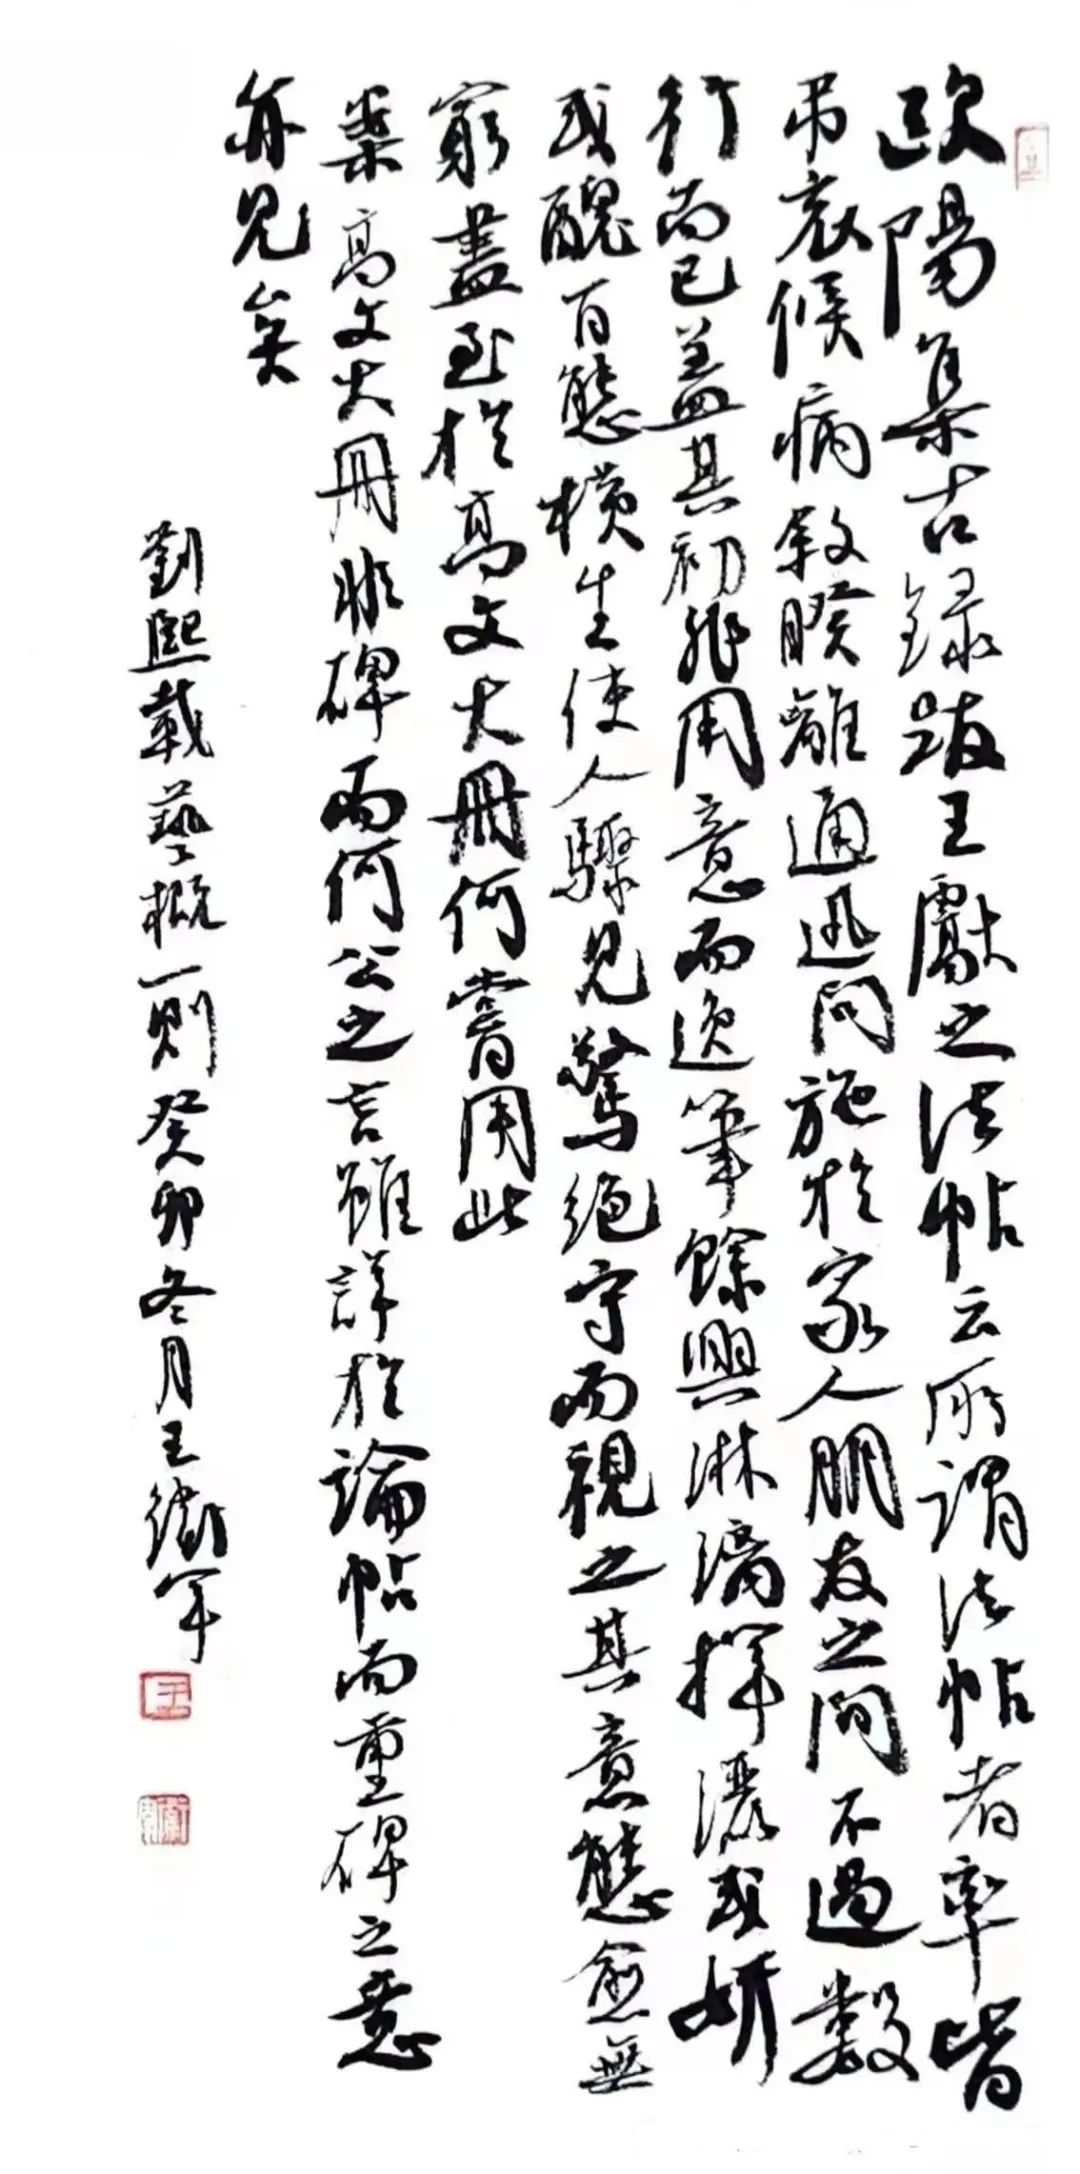 歐陽集古錄跋王獻之法帖云所謂法帖者率皆
吊哀候病敘睽離通迅問施於家人朋友之間不過數
行而已蓋其初非用意而逸筆餘興淋漓揮灑或妍
或醜百態橫生使人驟見驚絕守而視之其意態愈無
窮盡至於高文大冊何嘗用此
案高文大冊非碑而何公之言雖詳於論帖而重碑之意
亦見矣
劉熙載藝概一則癸卯冬月王衛軍
王